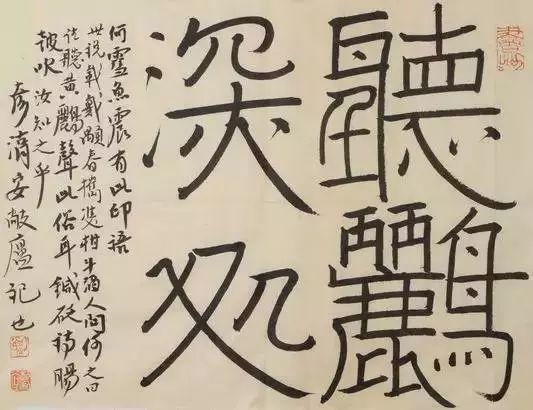 聽鸝
深処
何雪魚震有此印語
世説載戴顒春攜雙柑斗酒人問何之曰
往聽黃鸝聲此俗耳鍼砭詩腸
鼓吹汝知之乎
廬記也